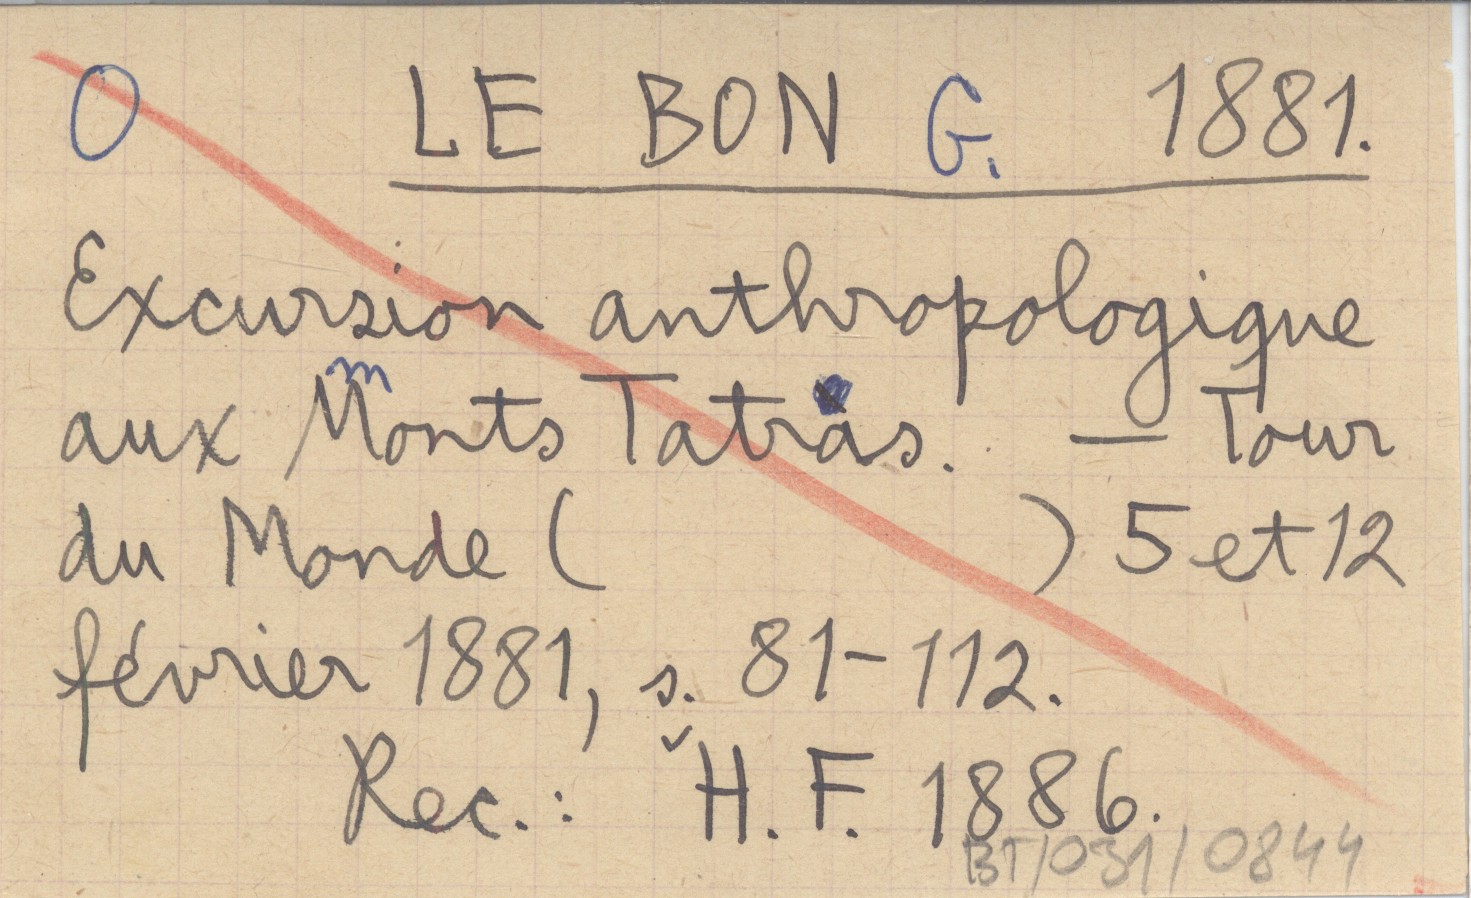 O LE BON G. 1881.
Excursion anthropologique
aux Monts Tatras. — Tour
du Monde ( ) 5 et 12
février 1881, s. 81-112.
Rec.: H. F. 1886.
BT/031/0844